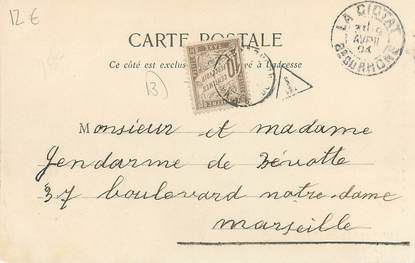 12 €
CARTE POSTALE
Ce côté est exclus à l'adresse
13
10
LA CIOTAT
AVRIL
04
BOUCHES-DU-RHONE
Monsieur et madame
Gendarme de Bévotte
37 boulevard notre-dame
marseille